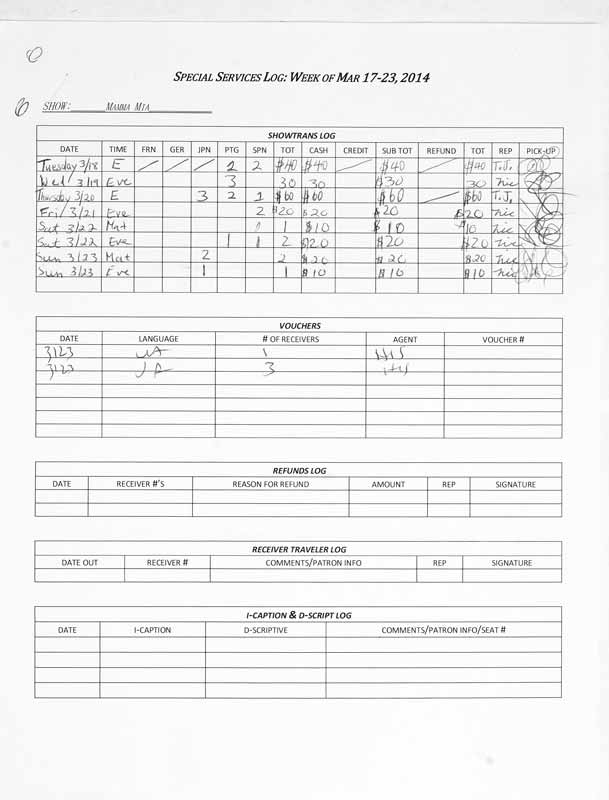 SPECIAL SERVICES LOG: WEEK OF MAR 17-23, 2014
SHOW: MAMMA MIA
SHOWTRANS LOG
DATE TIME FRN GER JPN PTG SPN TOT CASH CREDIT SUB TOT REFUND TOT REP PICK-UP
Tuesday 3/18 E / / / 2 2 $40 $40 / $40 / $40 T.J.
Wed 3/19 Eve 3 30 30 $30 30 Nic
Thursday 3/20 E 3 2 1 $60 $60 $60 / $60 T.J.
Fri 3/21 Eve 2 $20 $20 $20 $20 Nic
Sat 3/22 Mat 1 $10 $10 $10 Nic
Sat 3/22 Eve 1 1 2 $20 $20 $20 Nic
Sun 3/23 Mat 2 2 $20 $20 $20 Nic
Sun 3/23 Eve 1 1 $10 $10 $10 Nic
VOUCHERS
DATE LANGUAGE # OF RECEIVERS AGENT VOUCHER #
3/23 1
3/23 3
REFUNDS LOG
DATE RECEIVER #'S REASON FOR REFUND AMOUNT REP SIGNATURE
RECEIVER TRAVELER LOG
DATE OUT RECEIVER # COMMENTS/PATRON INFO REP SIGNATURE
I-CAPTION & D-SCRIPT LOG
DATE I-CAPTION D-SCRIPTIVE COMMENTS/PATRON INFO/SEAT #